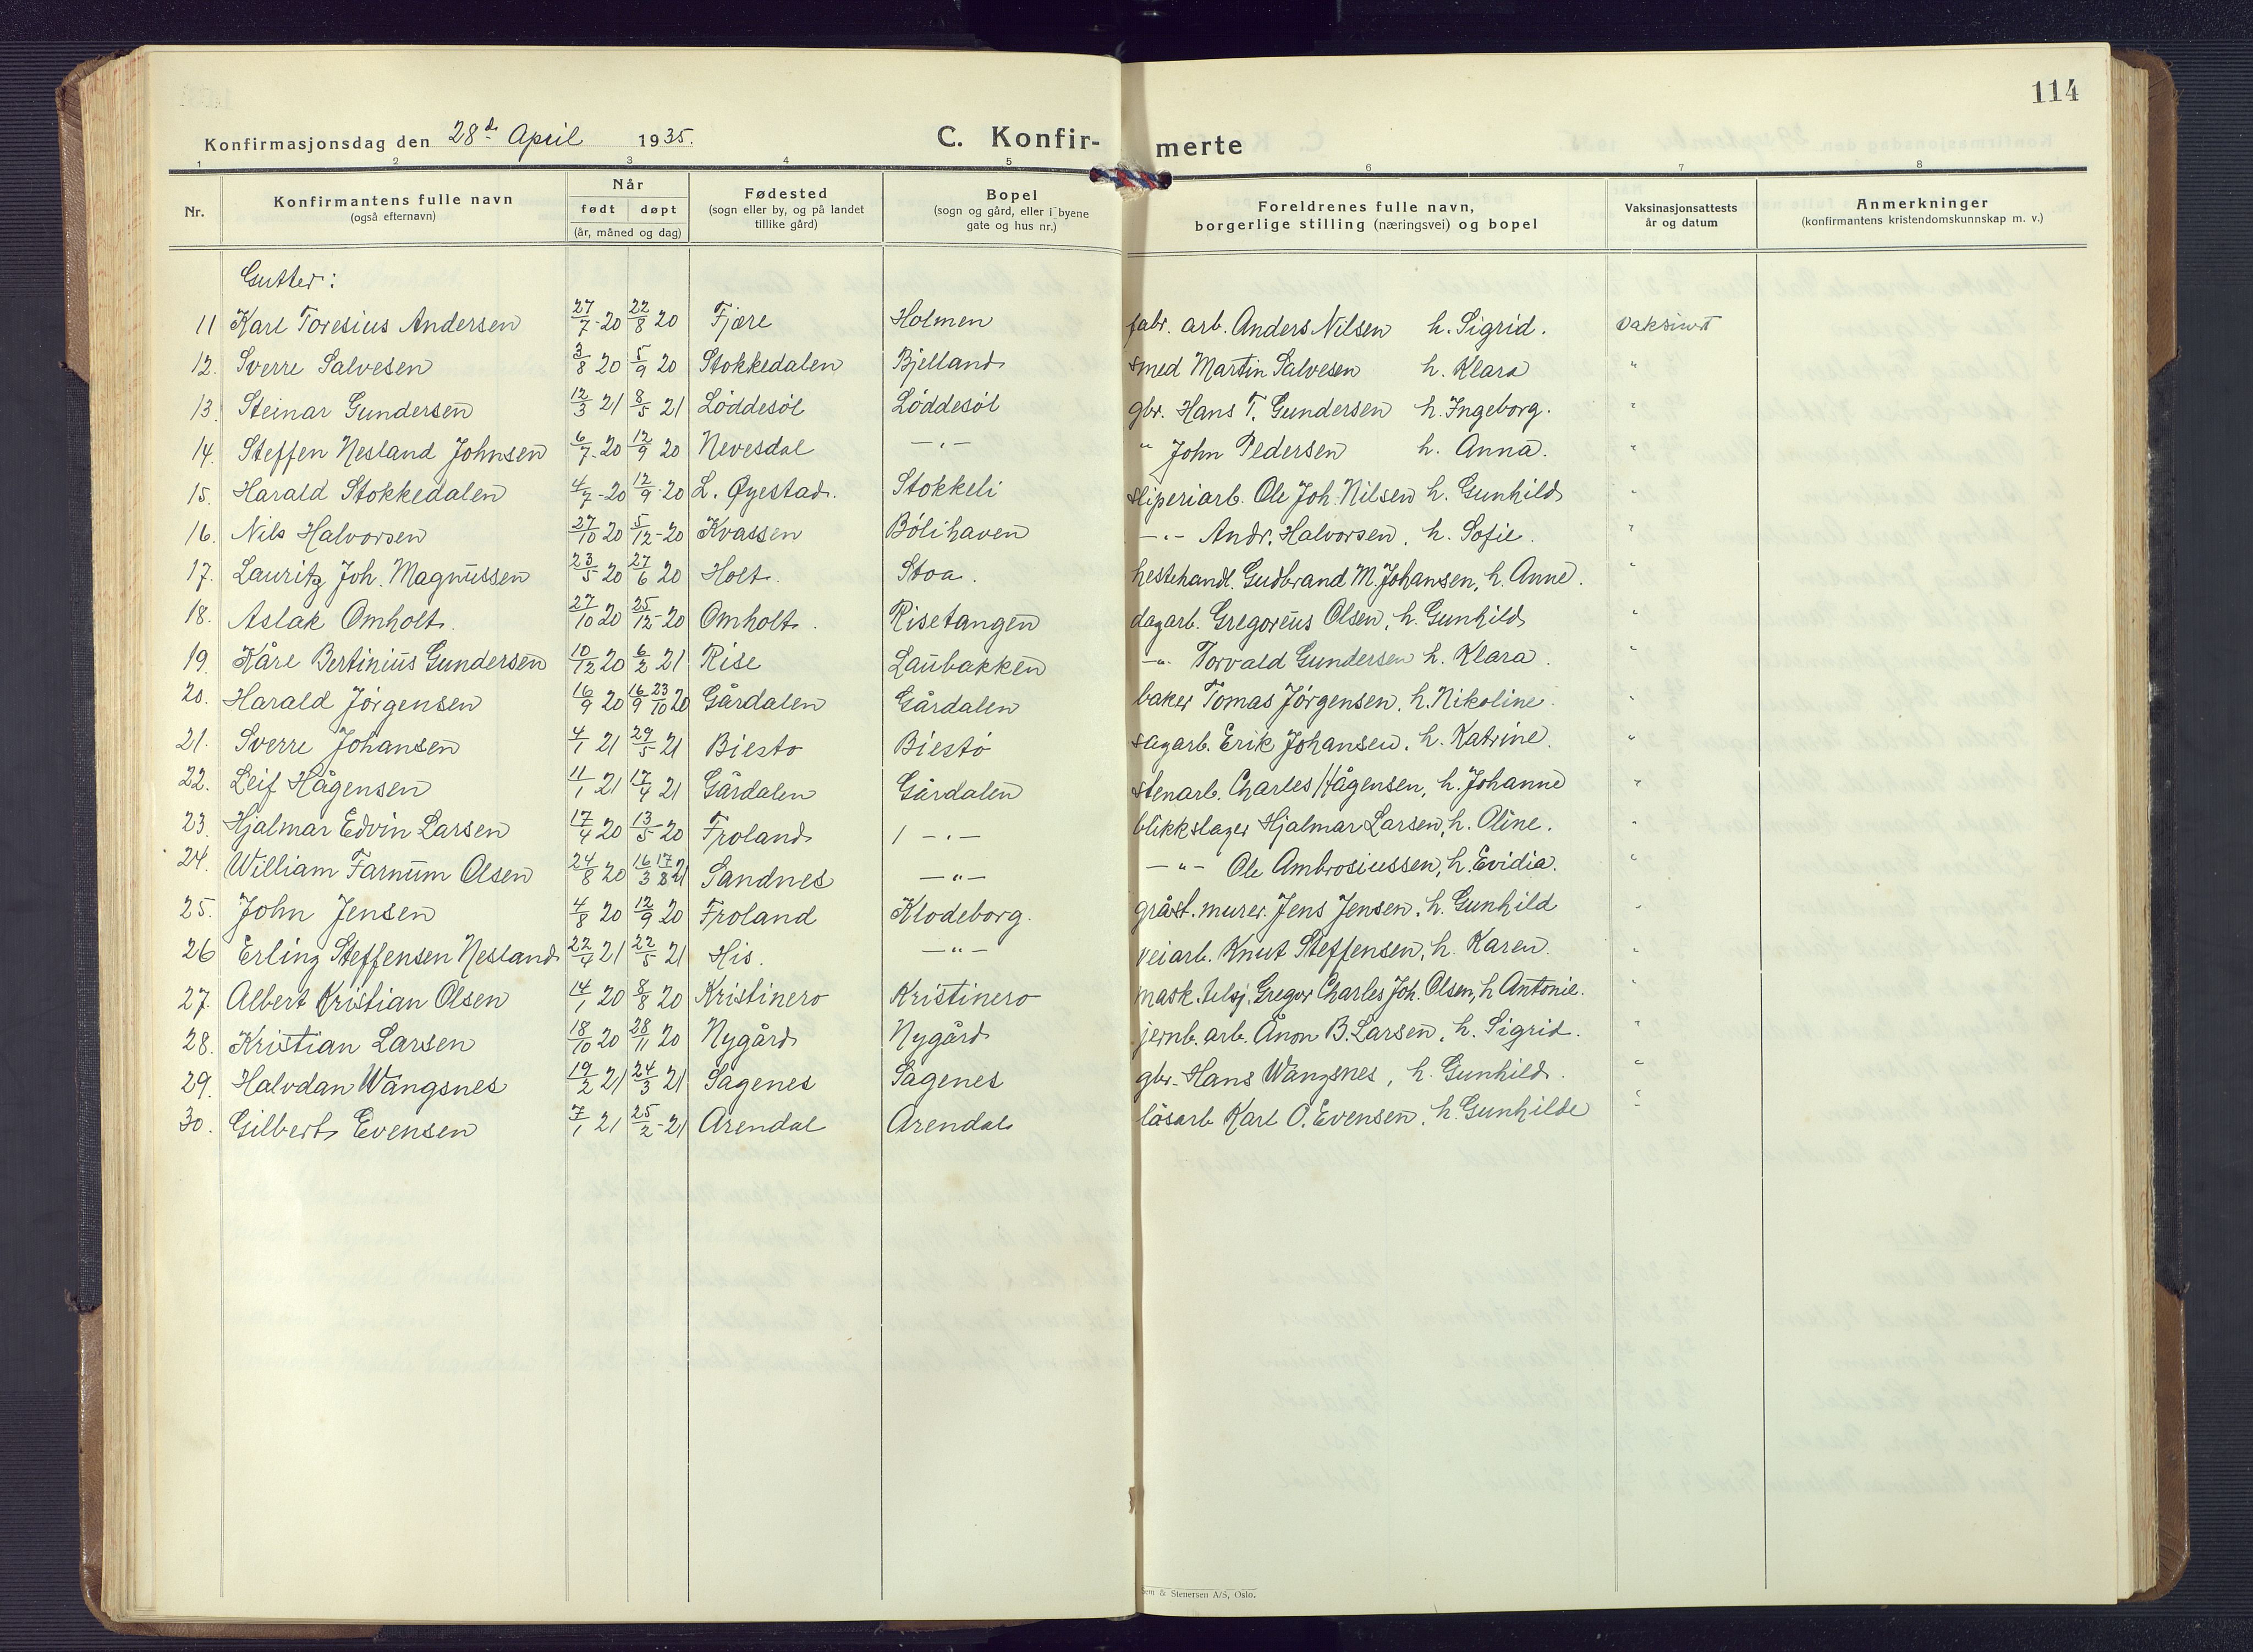 114
Konfirmasjonsdag den 28de April 1935.
C. Konfir- merte
1 2 3 4 5 6 7 8
Nr. Konfirmantens fulle navn (også efternavn) Når født døpt (år, måned og dag) Fødested (sogn eller by, og på landet tillike gård) Bopel (sogn og gård, eller i byene gate og hus nr.) Foreldrenes fulle navn, borgerlige stilling (næringsvei) og bopel Vaksinasjonsattests år og datum Anmerkninger (konfirmantens kristendomskunnskap m. v.)
Gutter:
11 Karl Toresius Andersen 27/7-20 22/8 20 Fjære Holmen fabr. arb. Anders Nilsen h. Sigrid. Vaksinert
12. Sverre Salvesen 3/8 20 5/9 20 Stokkedalen Bjelland smed Martin Salvesen h. Klara "
13. Steinar Gundersen 12/3 21 8/5 21 Løddesøl Løddesøl gbr. Hans T. Gundersen h. Ingeborg. "
14. Steffen Nesland Johnsen 6/7-20 12/9 20 Nevesdal -"- " John Pedersen h. Anna. "
15. Harald Stokkedalen 4/7-20 12/9-20 L. Øyestad. Stokkeli sliperiarb. Ole Joh. Nilsen h. Gunhild "
16. Nils Halvorsen 27/10 20 5/12-20 Kvassen Bölihaven -"- Andr. Halvorsen. h. Sofie. "
17. Lauritz Joh. Magnussen 23/5 20 27/6 20 Holt. Stoa. hestehandl. Gudbrand M. Johansen, h. Anne. "
18. Aslak Omholt. 27/10 20 25/12-20 Omholt. Risetangen dagarb. Gregoreus Olsen, h. Gunhild "
19. Kåre Bertinius Gundersen 10/12 20 6/2 21 Rise Laubakken -"- Torvald Gundersen h. Klara. "
20. Harald Jörgensen 16/9 20 16/9 23/10 20 Gårdalen Gårdalen baker Tomas Jörgensen, h. Nikoline. "
21. Sverre Johansen 4/1 21 29/5 21 Biestö Biestö sagarb. Erik Johansen, h. Katrine. "
22. Leif Hågensen 11/1 21 17/4 21 Gårdalen Gårdalen stenarb. Charles Hågensen, h. Johanne "
23. Hjalmar Edvin Larsen 17/4 20 13/5-20 Froland -"- blikkslager Hjalmar Larsen, h. Oline. "
24. William Farnum Olsen 24/8 20 16/3 17/8 21 Sandnes -"- -"- Ole Ambrosiussen, h. Evidia. "
25. John Jensen 4/8 20 12/9 20 Froland Klodeborg. gråst. murer. Jens Jensen, h. Gunhild "
26 Erling Steffensen Nesland 22/4 21 22/5 21 His. -"- veiarb. Knut Steffensen, h. Karen. "
27. Albert Kristian Olsen 14/1 20 8/8 20 Kristinero Kristinero mask. Gregor Charles Joh. Olsen, h Antonie. "
28. Kristian Larsen 18/10 20 28/11 20 Nygård Nygård jernb. arb. Ånon B. Larsen, h. Sigrid. "
29. Halvdan Wangsnes 19/2 21 24/3 21 Sagenes Sagenes gbr. Hans Wangsnes, h. Gunhild. "
30. Gilbert Evensen 7/1 21 25/2-21 Arendal Arendal låsarb Karl O. Evensen, h. Gunhilde "
Sem & Stenersen A/S, Oslo.